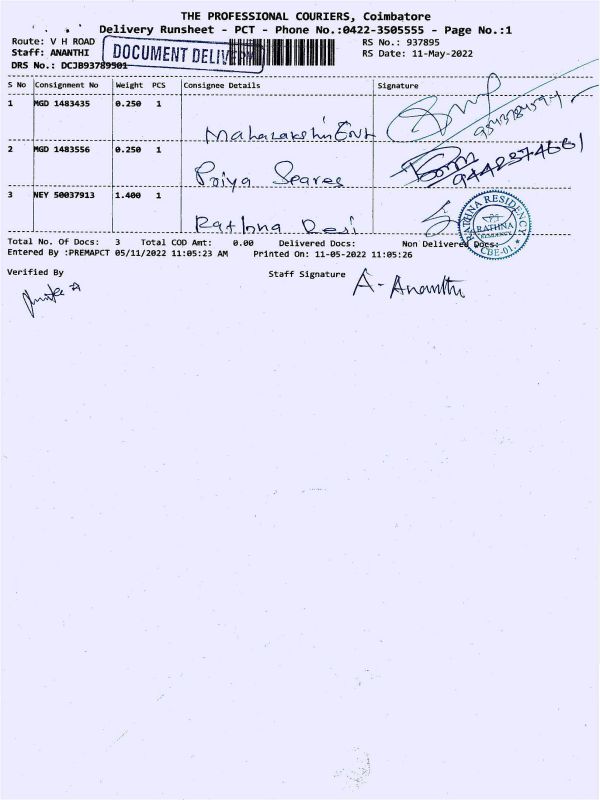 THE PROFESSIONAL COURIERS, Coimbatore
Delivery Runsheet - PCT - Phone No.:0422-3505555 - Page No.:1
Route: V H ROAD
RS No.: 937895
Staff: ANANTHI
DOCUMENT DELIVE
RS Date: 11-May-2022
DRS No.: DCJB93789501
S No Consignment No Weight PCS Consignee Details Signature
1 MGD 1483435 0.250 1
Mahalakshmi Ent
2 MGD 1483556 0.250 1
9442374661
Priya Seares
3 NEY 50037913 1.400 1
Rathna Resi
RATHNA RESIDENCY
RATHNA
RESIDENCY
CBE-01.
Total No. Of Docs: 3 Total COD Amt: 0.00 Delivered Docs: Non Delivered Docs:
Entered By :PREMAPCT 05/11/2022 11:05:23 AM Printed On: 11-05-2022 11:05:26
Verified By
Staff Signature A- Ananthi